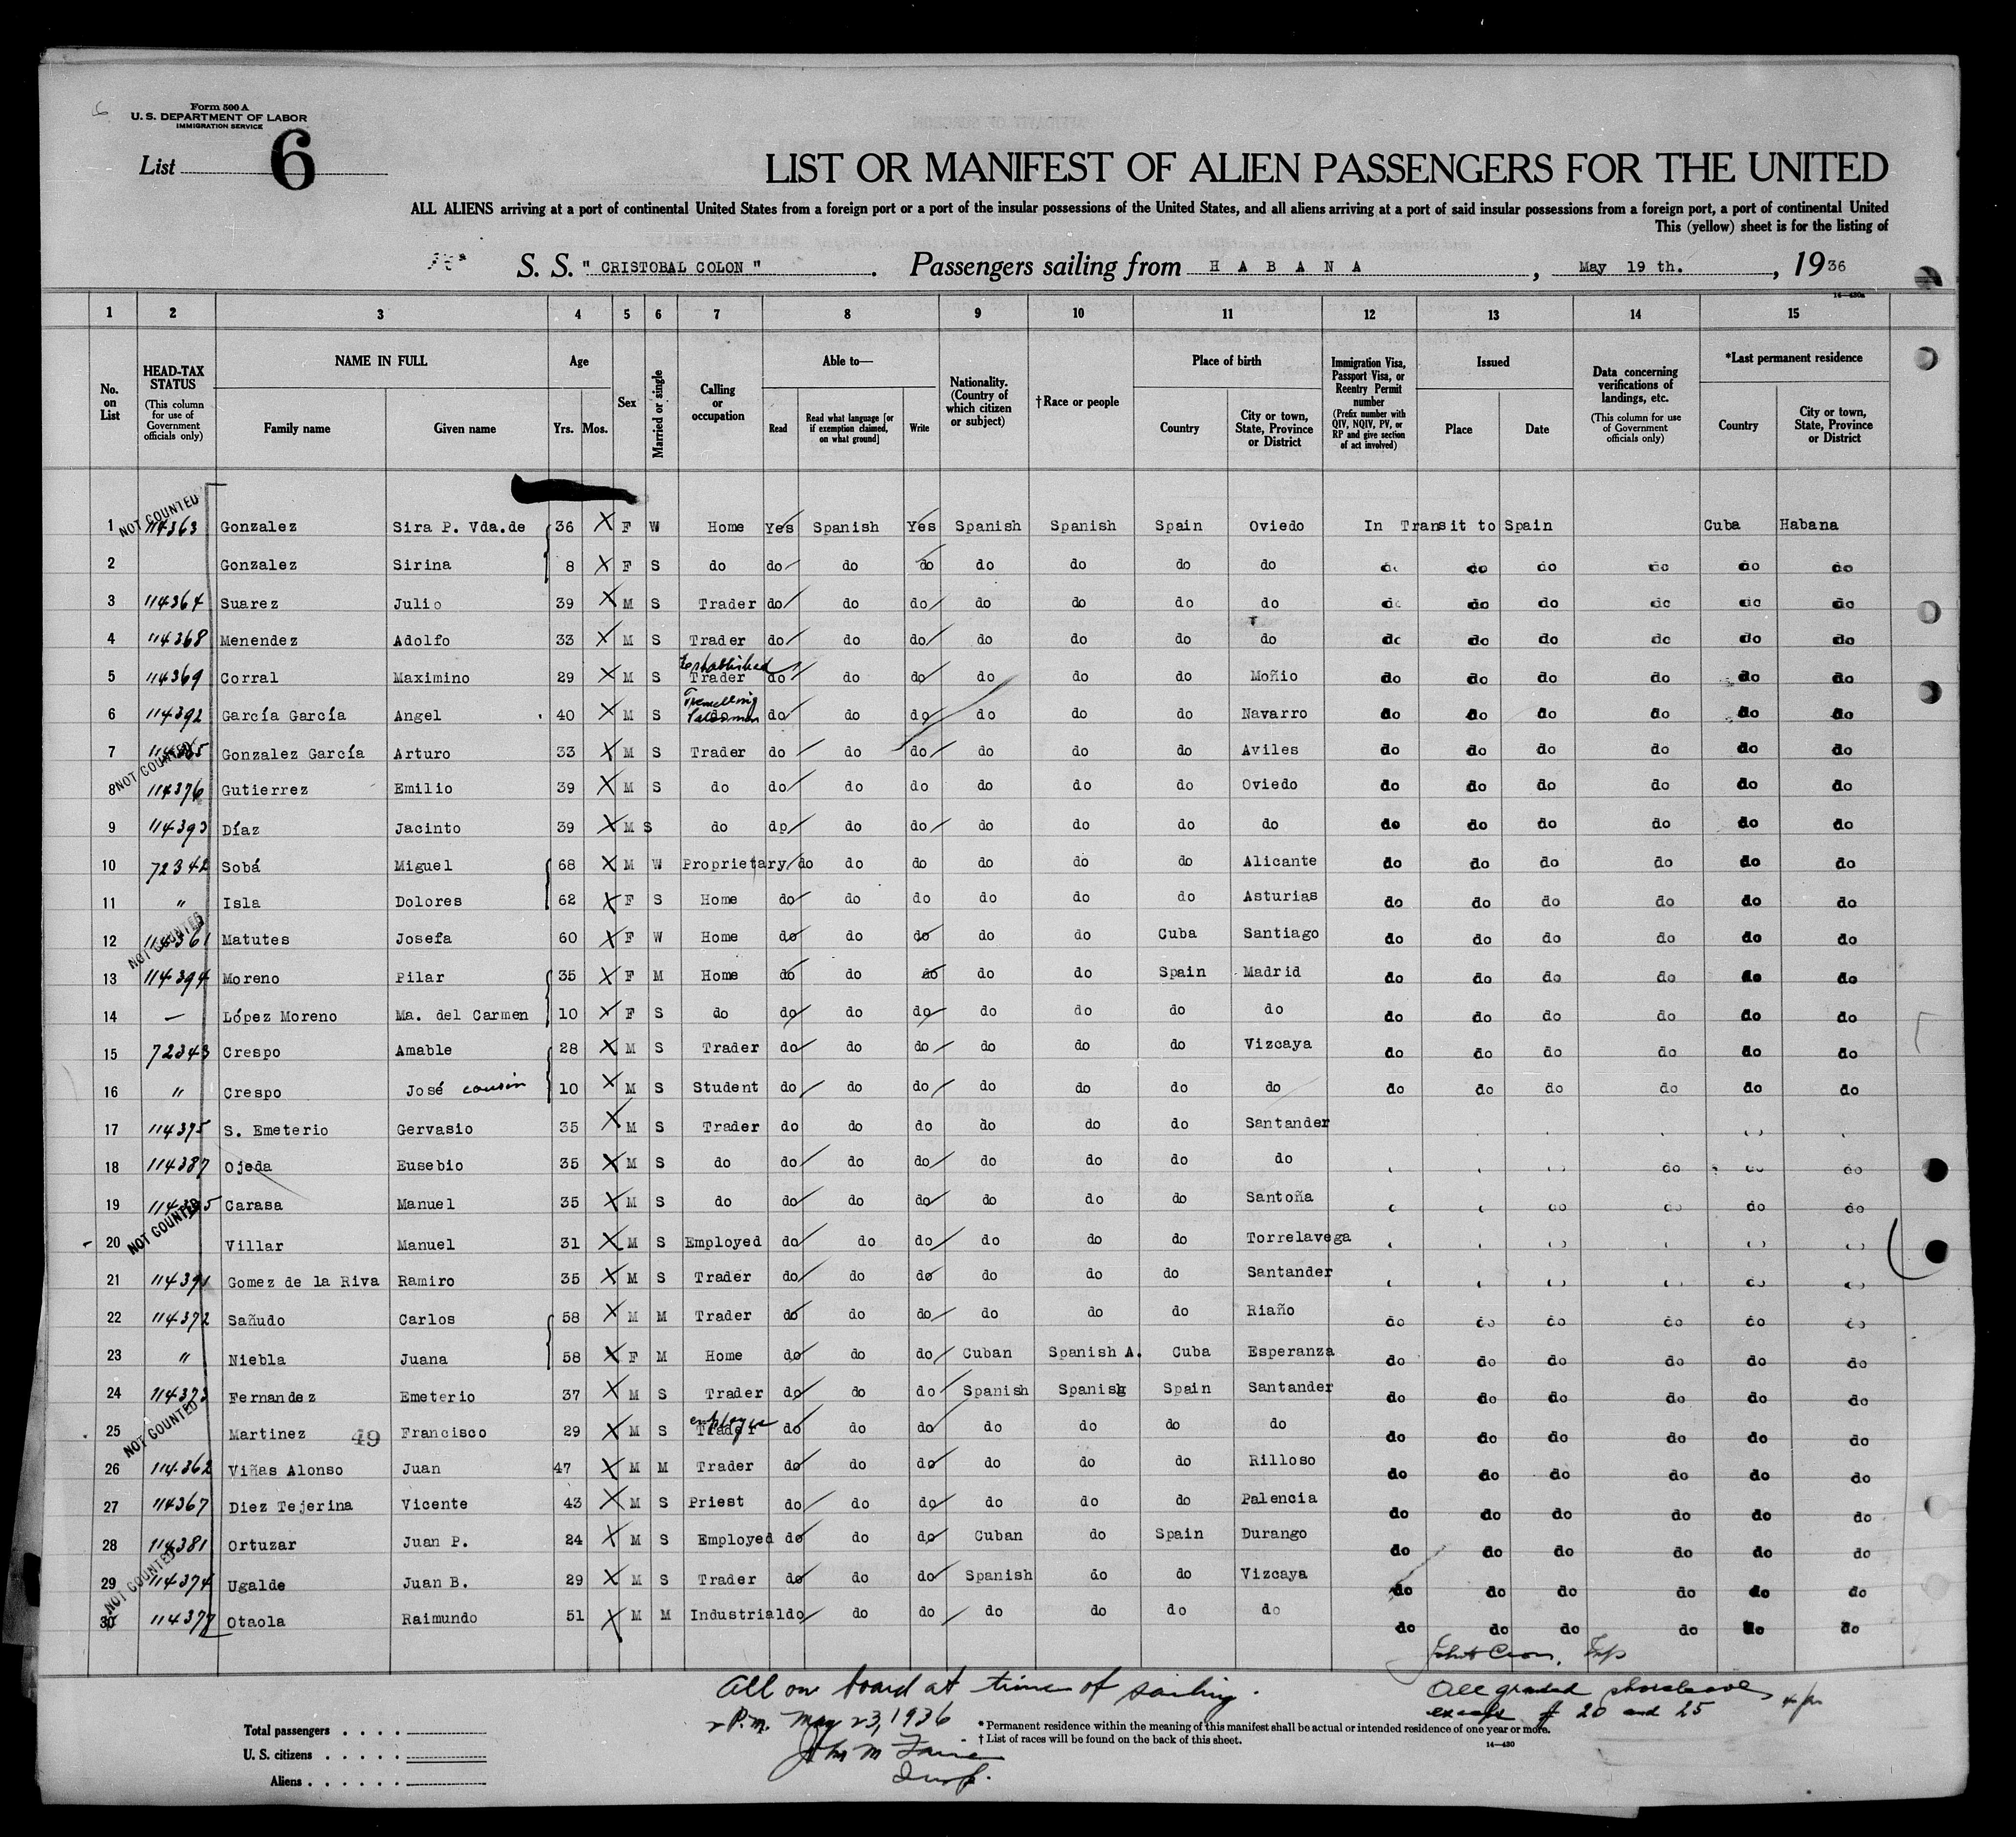 Form 500 A
U. S. DEPARTMENT OF LABOR
IMMIGRATION SERVICE
List 6
LIST OR MANIFEST OF ALIEN PASSENGERS FOR THE UNITED
ALL ALIENS arriving at a port of continental United States from a foreign port or a port of the insular possessions of the United States, and all aliens arriving at a port of said insular possessions from a foreign port, a port of continental United
This (yellow) sheet is for the listing of
S. S. " CRISTOBAL COLON " . Passengers sailing from H A B A N A , May 19 th. , 1936
1 2 3 4 5 6 7 8 9 10 11 12 13 14 15
No. on List
HEAD-TAX STATUS (This column for use of Government officials only)
NAME IN FULL Family name Given name
Age Yrs. Mos.
Sex
Married or single
Calling or occupation
Able to— Read Read what language [or if exemption claimed, on what ground] Write
Nationality. (Country of which citizen or subject)
†Race or people
Place of birth Country City or town, State, Province or District
Immigration Visa, Passport Visa, or Reentry Permit number (Prefix number with QIV, NQIV, PV, or RP and give section of act involved)
Issued Place Date
Data concerning verifications of landings, etc. (This column for use of Government officials only)
*Last permanent residence Country City or town, State, Province or District
1 NOT COUNTED 114363 Gonzalez Sira P. Vda.de 36 X F W Home Yes Spanish Yes Spanish Spanish Spain Oviedo In Transit to Spain Cuba Habana
2 Gonzalez Sirina 8 X F S do do do do do do do do do do do do do do
3 114364 Suarez Julio 39 X M S Trader do do do do do do do do do do do do do
4 114368 Menendez Adolfo 33 X M S Trader do do do do do do do do do do do do do
5 114369 Corral Maximino 29 X M S established Trader do do do do do do Moñio do do do do do do
6 114392 García García Angel 40 X M S Travelling Salesman do do do do do do Navarro do do do do do do
7 Gonzalez García Arturo 33 X M S Trader do do do do do do Aviles do do do do do do
8 NOT COUNTED 114376 Gutierrez Emilio 39 X M S do do do do do do do Oviedo do do do do do do
9 114393 Díaz Jacinto 39 X M S do do do do do do do do do do do do do do
10 72342 Sobá Miguel 68 X M W Proprietary do do do do do do Alicante do do do do do do
11 " Isla Dolores 62 X F S Home do do do do do do Asturias do do do do do do
12 NOT COUNTED Matutes Josefa 60 X F W Home do do do do do Cuba Santiago do do do do do do
13 114394 Moreno Pilar 35 X F M Home do do do do do Spain Madrid do do do do do do
14 — López Moreno Ma. del Carmen 10 X F S do do do do do do do do do do do do do do
15 72343 Crespo Amable 28 X M S Trader do do do do do do Vizcaya do do do do do do
16 " Crespo José cousin 10 X M S Student do do do do do do do do do do do do do
17 114375 S. Emeterio Gervasio 35 X M S Trader do do do do do do Santander
18 114387 Ojeda Eusebio 35 X M S do do do do do do do do do do
19 Carasa Manuel 35 X M S do do do do do do do Santoña do do do
20 NOT COUNTED Villar Manuel 31 X M S Employed do do do do do do Torrelavega
21 114391 Gomez de la Riva Ramiro 35 X M S Trader do do do do do do Santander
22 114372 Sañudo Carlos 58 X M M Trader do do do do do do Riaño do do do do do do
23 " Niebla Juana 58 X F M Home do do do Cuban Spanish A. Cuba Esperanza do do do do do do
24 114373 Fernandez Emeterio 37 X M S Trader do do do Spanish Spanish Spain Santander do do do do do do
25 NOT COUNTED Martinez 49 Francisco 29 X M S employee Trader do do do do do do do do do do do do do
26 114362 Viñas Alonso Juan 47 X M M Trader do do do do do do Rilloso do do do do do do
27 114367 Diez Tejerina Vicente 43 X M S Priest do do do do do do Palencia do do do do do do
28 114381 Ortuzar Juan P. 24 X M S Employed do do do Cuban do Spain Durango do do do do do do
29 NOT COUNTED 114374 Ugalde Juan B. 29 X M S Trader do do do Spanish do do Vizcaya do do do do do do
30 114377 Otaola Raimundo 51 X M M Industrial do do do do do do do do do do do do do
All on board at time of sailing.
2 P.m. May 23, 1936
Insp.
All granted shoreleave
except # 20 and 25
Total passengers . . . .
U. S. citizens . . . . .
Aliens . . . . . .
* Permanent residence within the meaning of this manifest shall be actual or intended residence of one year or more.
† List of races will be found on the back of this sheet.
14—430